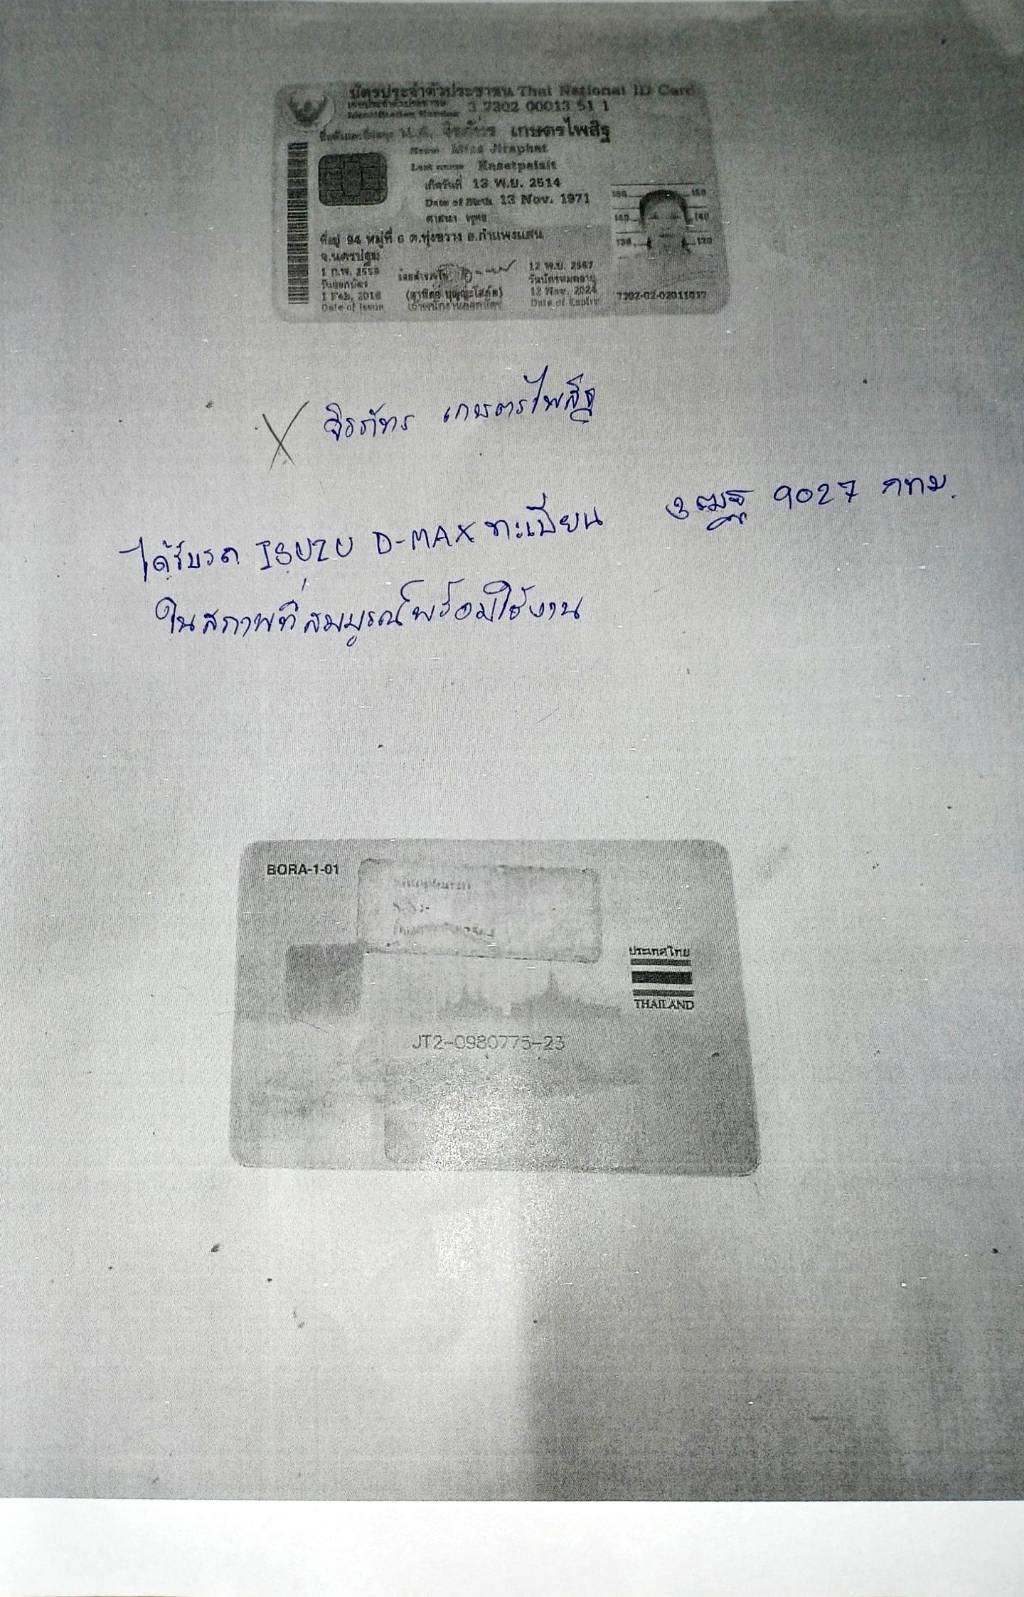 บัตรประจำตัวประชาชน Thai National ID Card
เลขประจำตัวประชาชน 3 7302 00013 51 1
Identification Number
ชื่อตัวและชื่อสกุล น.ส. จิรภัทร เกษตรไพสิฐ
Name Miss Jiraphat
Last name Kasetpaisit
เกิดวันที่ 13 พ.ย. 2514
Date of Birth 13 Nov. 1971
ศาสนา พุทธ
ที่อยู่ 94 หมู่ที่ 6 ต.ทุ่งขวาง อ.กำแพงแสน
จ.นครปฐม
1 ก.พ. 2559
วันออกบัตร
1 Feb. 2016
Date of Issue
เจ้าพนักงานออกบัตร
12 พ.ย. 2567
วันบัตรหมดอายุ
12 Nov. 2024
Date of Expiry
150 150
140 140
130 130
X จิรภัทร เกษตรไพสิฐ
ได้รับรถ ISUZU D-MAX ทะเบียน 9027 กทม.
ในสภาพที่สมบูรณ์พร้อมใช้งาน
BORA-1-01
ประเทศไทย
THAILAND
JT2-0980775-23